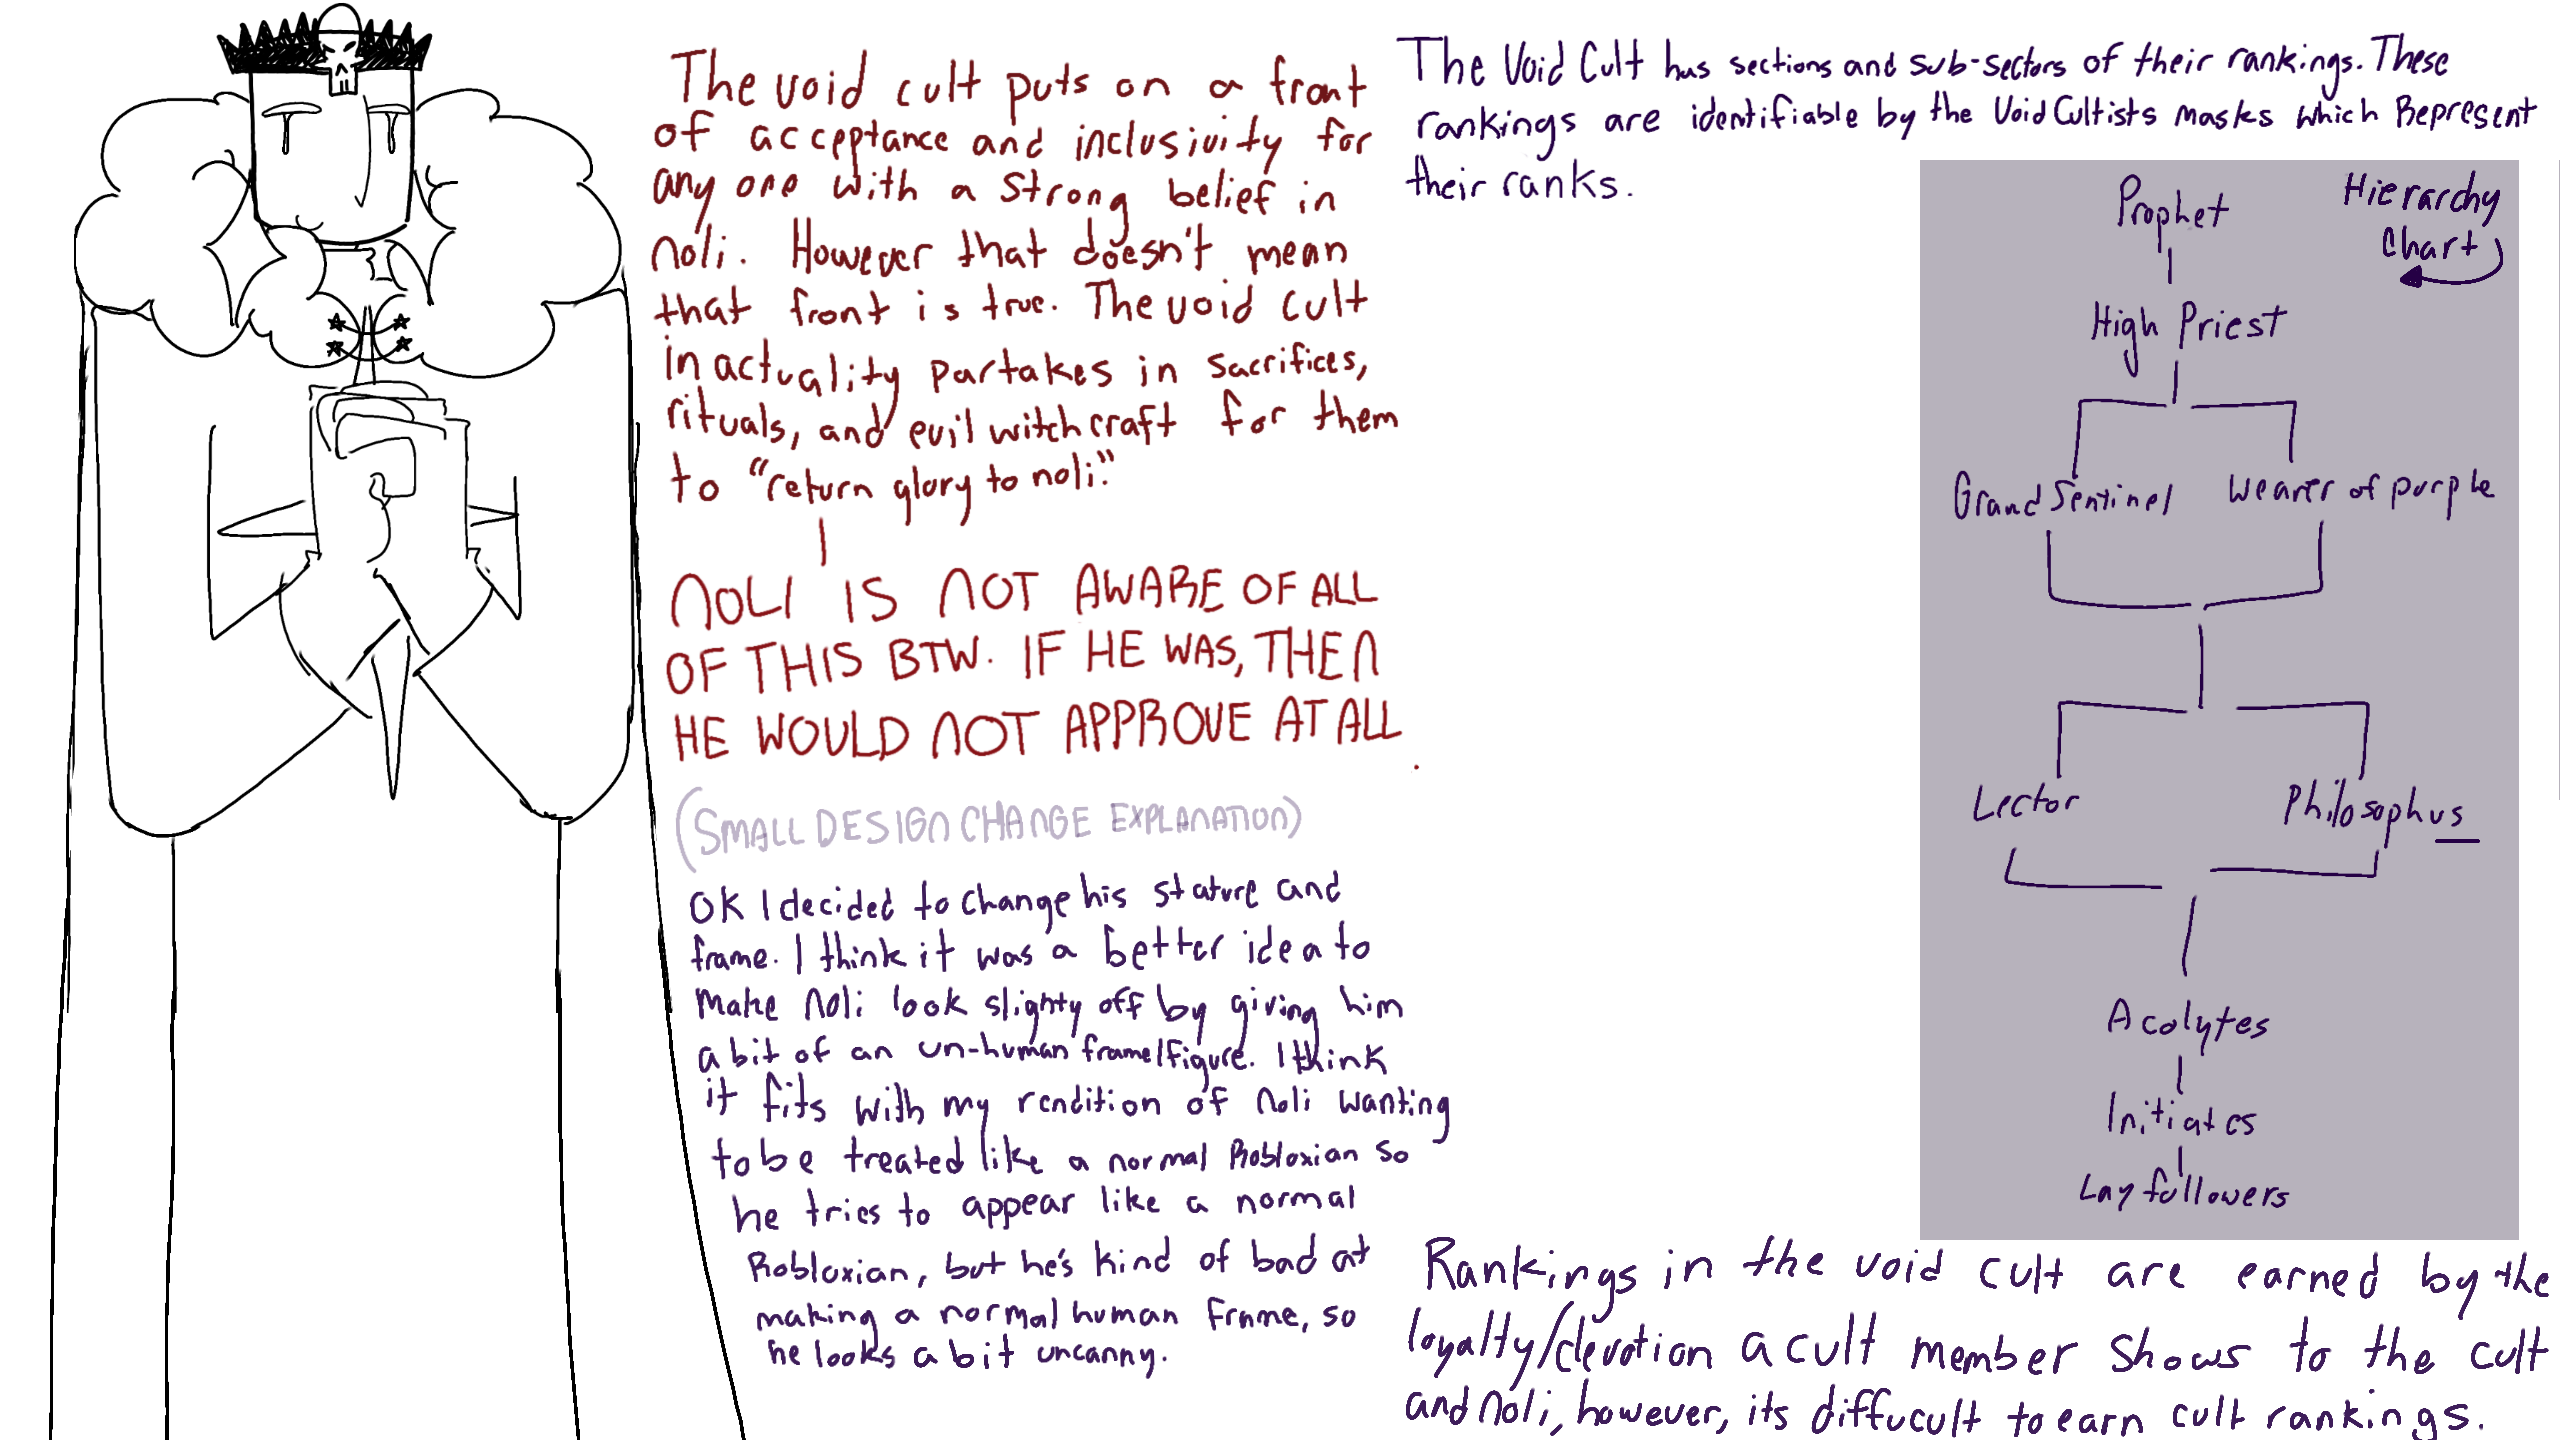 The void cult puts on a front
of acceptance and inclusivity for
any one with a strong belief in
noli. However that doesn't mean
that front is true. The void cult
in actuality partakes in sacrifices,
rituals, and evil witchcraft for them
to "return glory to noli."
NOLI IS NOT AWARE OF ALL
OF THIS BTW. IF HE WAS, THEN
HE WOULD NOT APPROVE AT ALL
(SMALL DESIGN CHANGE EXPLANATION)
OK I decided to change his stature and
frame. I think it was a better idea to
make noli look slighty off by giving him
a bit of an un-human frame/figure. I think
it fits with my rendition of noli wanting
to be treated like a normal Robloxian so
he tries to appear like a normal
Robloxian, but he's kind of bad at
making a normal human frame, so
he looks a bit uncanny.
The Void Cult has sections and sub-sectors of their rankings. These
rankings are identifiable by the Void Cultists masks which Represent
their ranks.
Hierarchy
Chart
Prophet
High Priest
Grand Sentinel
Wearer of purple
Lector
Philosophus
Acolytes
Initiates
Lay followers
Rankings in the void cult are earned by the
loyalty/devotion a cult member shows to the cult
and noli, however, its diffucult to earn cult rankings.